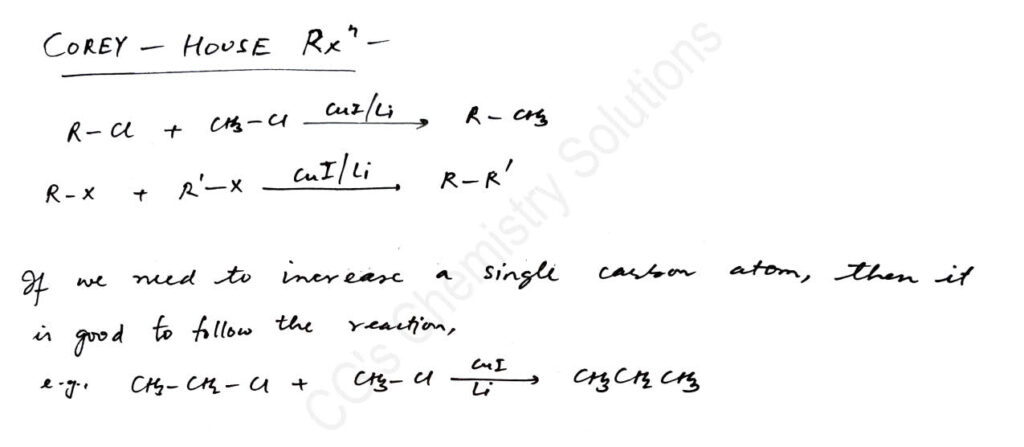 COREY – HOUSE Rxⁿ –
R–Cl + CH₃–Cl CuI/Li → R–CH₃
R–X + R'–X CuI/Li → R–R'
If we need to increase a single carbon atom, then it
is good to follow the reaction,
e.g., CH₃–CH₂–Cl + CH₃–Cl CuI/Li → CH₃CH₂CH₃
CG's Chemistry Solutions